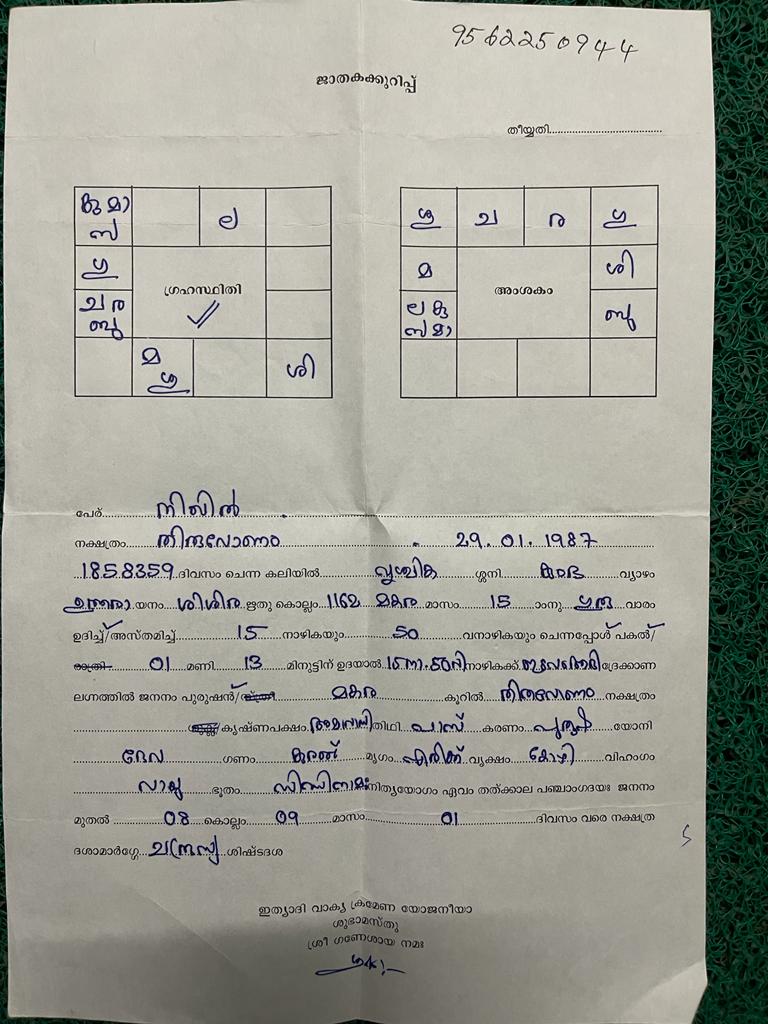 9562250944
ജാതകക്കുറിപ്പ്
തീയ്യതി
കു മാ ല
സ
ഗു
ഗ്രഹസ്ഥിതി
ച ര
ബു
മ
ശു ശി
ശു ച ര ഗു
മ ശി
അംശകം
ല കു
സ മാ ബു
പേര് നിഖിൽ
നക്ഷത്രം തിരുവോണം 29.01.1987
1858359 ദിവസം ചെന്ന കലിയിൽ വൃശ്ചിക ശ്ശനി കുംഭ വ്യാഴം
ഉത്തരാ യനം ശിശിര ഋതു കൊല്ലം 1162 മകര മാസം 15 ാംനു ഗുരു വാരം
ഉദിച്ച്/അസ്തമിച്ച് 15 നാഴികയും 50 വനാഴികയും ചെന്നപ്പോൾ പകൽ/
രാത്രി 01 മണി 13 മിനുട്ടിന് ഉദയാൽ 15 നാ. 50 വി നാഴികക്ക് ദ്രേക്കാണ
ലഗ്നത്തിൽ ജനനം പുരുഷൻ/സ്ത്രീ മകര കൂറിൽ തിരുവോണം നക്ഷത്രം
കൃഷ്ണപക്ഷം അമാവാസി തിഥി കരണം പുരുഷ യോനി
ദേവ ഗണം കുരങ്ങ് മൃഗം എരിക്ക് വൃക്ഷം കോഴി വിഹംഗം
വായു ഭൂതം സിദ്ധിനാമ നിത്യയോഗം ഏവം തത്ക്കാല പഞ്ചാംഗദയഃ ജനനം
മുതൽ 08 കൊല്ലം 09 മാസം 01 ദിവസം വരെ നക്ഷത്ര
ദശാമാർഗ്ഗേ ചന്ദ്രസ്യ ശിഷ്ടദശ
ഇത്യാദി വാക്യ ക്രമേണ യോജനീയാ
ശുഭാമസ്തു
ശ്രീ ഗണേശായ നമഃ